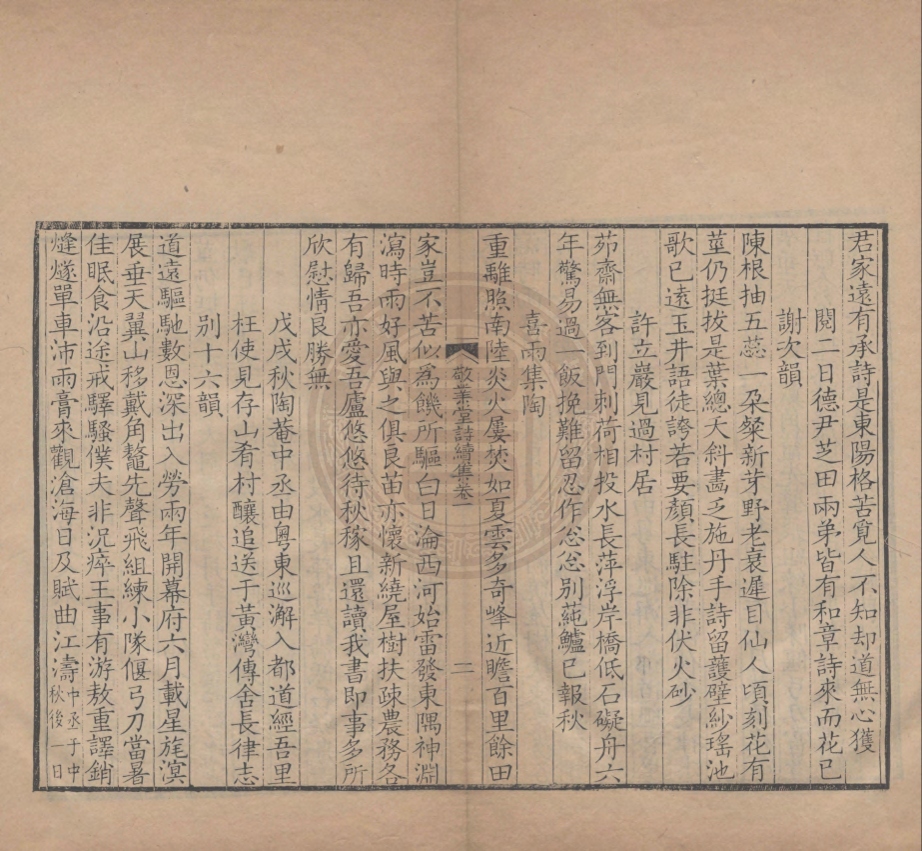 君家遠有承詩是東陽格苦覓人不知却道無心獲
閱二日德尹芝田兩弟皆有和章詩來而花已
謝次韻
陳根抽五蕊一朶粲新芽野老衰遲目仙人頃刻花有
莖仍挺拔是葉總夭斜畵乏施丹手詩留護壁紗瑤池
歌已遠玉井語徒誇若要顏長駐除非伏火砂
許立巖見過村居
茆齋無客到門刺荷相投水長萍浮岸橋低石礙舟六
年驚易過一飯挽難留忍作怱怱別蒓鱸已報秋
喜雨集陶
重離照南陸炎火屢焚如夏雲多奇峰近瞻百里餘田
敬業堂詩續集卷一
二
家豈不苦似爲饑所驅白日淪西河始雷發東隅神淵
瀉時雨好風與之俱良苗亦懷新繞屋樹扶疎農務各
有歸吾亦愛吾廬悠悠待秋稼且還讀我書即事多所
欣慰情良勝無
戊戌秋陶菴中丞由粵東巡澥入都道經吾里
枉使見存山肴村釀追送于黃灣傳舍長律志
別十六韻
道遠驅馳數恩深出入勞兩年開幕府六月載星旄溟
展垂天翼山移戴角鼇先聲飛組練小隊偃弓刀當暑
佳眠食沿途戒驛騷僕夫非況瘁王事有游敖重譯銷
㷭燧單車沛雨膏來觀滄海日及賦曲江濤中丞于中
秋後一日